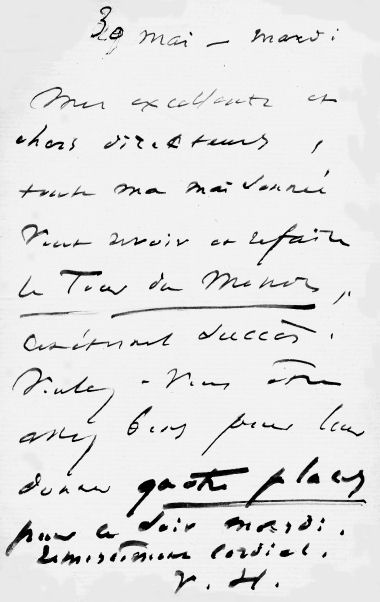 29 mai – mardi
Mes excellents et
chers directeurs,
toute ma maisonnée
veut revoir et refaire
le Tour du Monde,
cet éternel succès.
Voulez-vous être
assez bons pour leur
donner quatre places
pour ce soir mardi.
Remerciement cordial.
V. H.